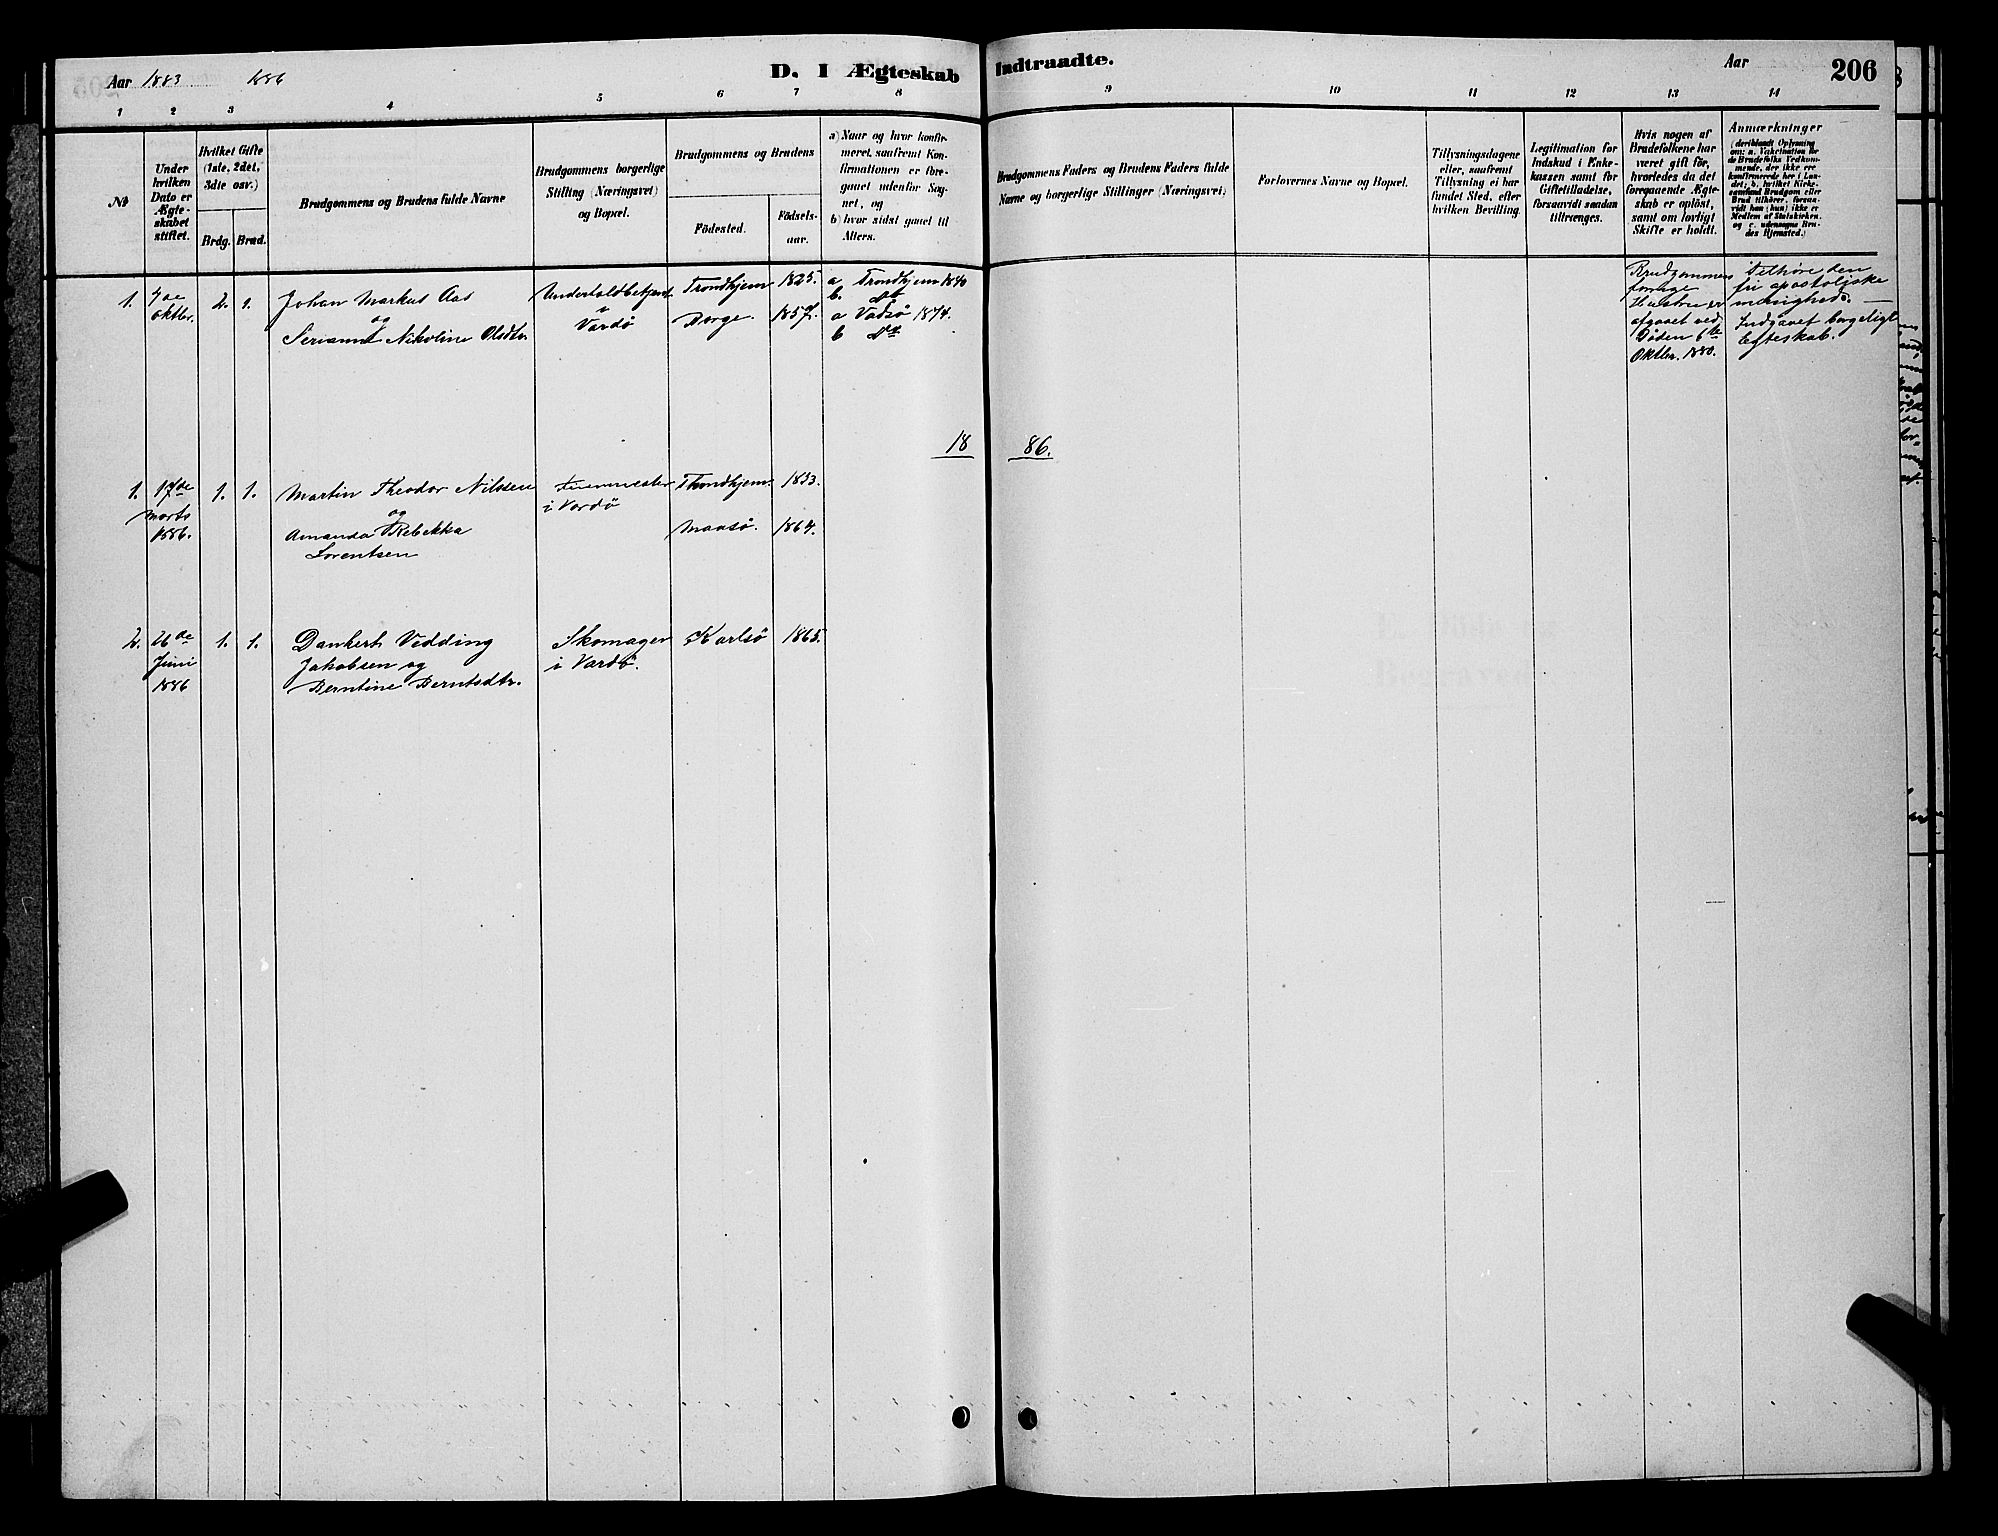 Aar 1883 1886
D. I Ægteskab Indtraadte.
Aar
206
1 2 3 4 5 6 7 8 9 10 11 12 13 14
No
Under
hvilken
Dato er
Ægte-
skabet
stiftet.
Hvilket Gifte
(1ste, 2det,
3die osv.)
Brdg. Brud.
Brudgommens og Brudens fulde Navne
Brudgommens borgerlige
Stilling (Næringsvei)
og Bopæl.
Brudgommens og Brudens
Födested.
Födsels-
aar.
a) Naar og hvor konfir-
meret, saafremt Kon-
firmationen er fore-
gaaet udenfor Sog-
net, og
b) hvor sidst gaaet til
Alters.
Brudgommens Faders og Brudens Faders fulde
Navne og borgerlige Stillinger (Næringsvei)
Forlovernes Navne og Bopæl.
Tillysningsdagene
eller, saafremt
Tillysning ei har
fundet Sted, efter
hvilken Bevilling.
Legitimation for
Indskud i Enke-
kassen samt for
Giftetilladelse,
forsaavidt saadan
tiltrænges.
Hvis nogen af
Brudefolkene har
været gift för,
hvorledes da det
foregaaende Ægte-
skab er oplöst,
samt om lovligt
Skifte er holdt.
Anmærkninger
(deriblandt Oplysning
om: a. Vakcination for
de Brudefolks Vedkom-
mende, der ikke ere
konfirmerede her i Lan-
det; b. hvilket Kirke-
samfund Brudgom eller
Brud tilhører, forsaa-
vidt han (hun) ikke er
Medlem af Statskirken,
og c. udensogns Bru-
des Hjemsted.)
1. 4de Oktbr. 2. 1. Johan Markus Aas
og
Serianna Nikoline Olsdtr.
i
Vardö
Trondhjem 1825. a Trondhjem 1840
b. do
Borge. 1857. a Vadsø 1874.
b do
Brudgommens
forrige
Hustru er
afgaaet ved
Døden 6te
Oktbr. 1880.
Tilhøre den
fri apostoliske
menighed. —
Indgaaet borgeligt
Egteskab.
18 86.
1. 17de Marts 1886. 1. 1. Martin Theodor Nilssen
og
Amanda Rebekka
Lorentsen
i Vardö
Trondhjem. 1853.
Maasö. 1864.
2. 26de Juni 1886 1. 1. Dankert Vedding
Jakobsen og
Berntine Berntsdtr.
Skomager
i Vardö.
Karlsö 1865.